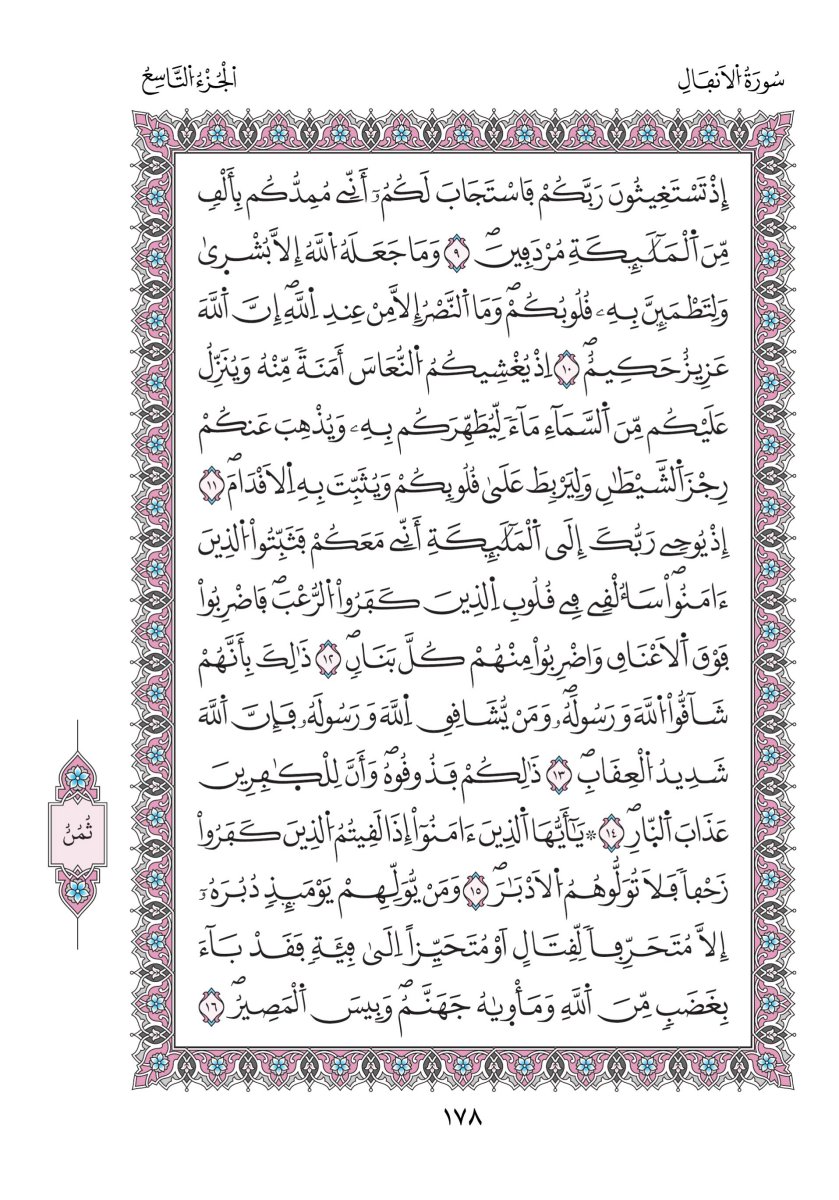 سُورَةُ اُ۬لَانفَالِ
اُ۬لْجُزْءُ اُ۬لتَّاسِعُ
إِذْ تَسْتَغِيثُونَ رَبَّكُمْ فَاسْتَجَابَ لَكُمُۥٓ أَنِّے مُمِدُّكُم بِأَلْفٖ
مِّنَ اَ۬لْمَلَٰٓئِكَةِ مُرْدَفِينَۖ ٩ وَمَا جَعَلَهُ اُ۬للَّهُ إِلَّا بُشْر۪ىٰ
وَلِتَطْمَئِنَّ بِهِۦ قُلُوبُكُمْۖ وَمَا اَ۬لنَّصْرُ إِلَّا مِنْ عِندِ اِ۬للَّهِۖ إِنَّ اَ۬للَّهَ
عَزِيزٌ حَكِيمٌۖ ١٠ اِذْ يُغْشِيكُمُ اُ۬لنُّعَاسَ أَمَنَةٗ مِّنْهُ وَيُنَزِّلُ
عَلَيْكُم مِّنَ اَ۬لسَّمَآءِ مَآءٗ لِّيُطَهِّرَكُم بِهِۦ وَيُذْهِبَ عَنكُمْ
رِجْزَ اَ۬لشَّيْطَٰنِ وَلِيَرْبِطَ عَلَىٰ قُلُوبِكُمْ وَيُثَبِّتَ بِهِ اِ۬لَاقْدَامَۖ ١١
إِذْ يُوحِے رَبُّكَ إِلَى اَ۬لْمَلَٰٓئِكَةِ أَنِّے مَعَكُمْ فَثَبِّتُواْ اُ۬لذِينَ
ءَامَنُواْۖ سَأُلْقِے فِے قُلُوبِ اِ۬لذِينَ كَفَرُواْ اُ۬لرُّعْبَۖ فَاضْرِبُواْ
فَوْقَ اَ۬لَاعْنَاقِ وَاضْرِبُواْ مِنْهُمْ كُلَّ بَنَانٖۖ ١٢ ذَٰلِكَ بِأَنَّهُمْ
شَآقُّواْ اُ۬للَّهَ وَرَسُولَهُۥۖ وَمَنْ يُّشَاقِقِ اِ۬للَّهَ وَرَسُولَهُۥ فَإِنَّ اَ۬للَّهَ
شَدِيدُ اُ۬لْعِقَابِۖ ١٣ ذَٰلِكُمْ فَذُوقُوهُۖ وَأَنَّ لِلْكٰ۪فِرِينَ
عَذَابَ اَ۬لنّ۪ارِۖ ١٤ ۞يَٰٓأَيُّهَا اَ۬لذِينَ ءَامَنُوٓاْ إِذَا لَقِيتُمُ اُ۬لذِينَ كَفَرُواْ
زَحْفاٗ فَلَا تُوَلُّوهُمُ اُ۬لَادْبَٰرَۖ ١٥ وَمَنْ يُّوَلِّهِمْ يَوْمَئِذٖ دُبُرَهُۥٓ
إِلَّا مُتَحَرِّفاٗ لِّقِتَالٍ اَوْ مُتَحَيِّزاً اِلَىٰ فِئَةٖ فَقَدْ بَآءَ
بِغَضَبٖ مِّنَ اَ۬للَّهِ وَمَأْو۪يٰهُ جَهَنَّمُۖ وَبِيسَ اَ۬لْمَصِيرُۖ ١٦
ثُمُنُ
١٧٨